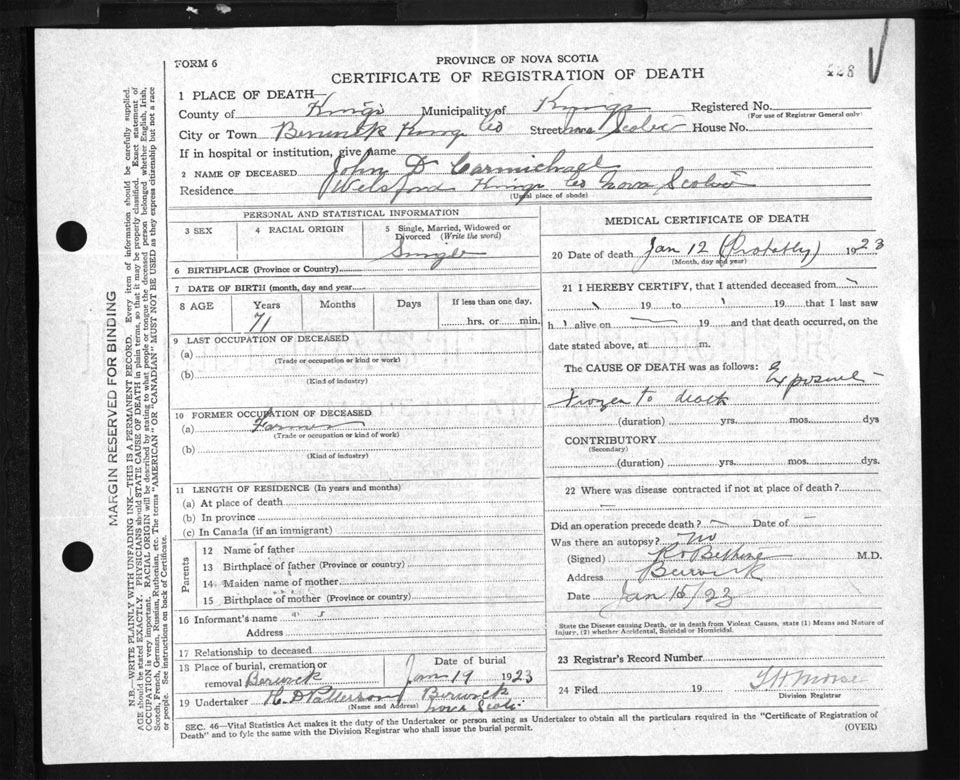 FORM 6
PROVINCE OF NOVA SCOTIA
CERTIFICATE OF REGISTRATION OF DEATH
228
1 PLACE OF DEATH—
County of Kings Municipality of Kings Registered No.
(For use of Registrar General only)
City or Town Berwick Kings Co Street Nova Scotia House No.
If in hospital or institution, give name
2 NAME OF DECEASED John D Carmichael
Residence Welsford Kings Co Nova Scotia
(Usual place of abode)
PERSONAL AND STATISTICAL INFORMATION
3 SEX
4 RACIAL ORIGIN
5 Single, Married, Widowed or
Divorced (Write the word)
Single
6 BIRTHPLACE (Province or Country)
7 DATE OF BIRTH (month, day and year)
8 AGE Years Months Days If less than one day,
71 hrs. or min.
9 LAST OCCUPATION OF DECEASED
(a)
(Trade or occupation or kind or work)
(b)
(Kind of industry)
10 FORMER OCCUPATION OF DECEASED
(a) Farmer
(Trade or occupation or kind of work)
(b)
(Kind of industry)
11 LENGTH OF RESIDENCE (In years and months)
(a) At place of death
(b) In province
(c) In Canada (if an immigrant)
Parents
12 Name of father
13 Birthplace of father (Province or country)
14 Maiden name of mother
15 Birthplace of mother (Province or country)
16 Informant's name
Address
17 Relationship to deceased
18 Place of burial, cremation or
removal Berwick
Date of burial
Jan 19 1923
19 Undertaker H. D Patterson Berwick
(Name and Address) Nova Scoti
MEDICAL CERTIFICATE OF DEATH
20 Date of death Jan 12 (Probatly) 1923
(Month, day and year)
21 I HEREBY CERTIFY, that I attended deceased from
19 to 19 that I last saw
h alive on 19 and that death occurred, on the
date stated above, at m.
The CAUSE OF DEATH was as follows: Exposure -
frozen to death
(duration) yrs. mos. dys
CONTRIBUTORY
(Secondary)
(duration) yrs. mos. dys.
22 Where was disease contracted if not at place of death?
Did an operation precede death? — Date of —
Was there an autopsy? no
(Signed) Bethune M.D.
Address Berwick
Date Jan 15/23
State the Disease causing Death, or in death from Violent Causes, state (1) Means and Nature of
Injury, (2) whether Accidental, Suicidal or Homicidal.
23 Registrar's Record Number
24 Filed 19 Morse
Division Registrar
SEC. 46—Vital Statistics Act makes it the duty of the Undertaker or person acting as Undertaker to obtain all the particulars required in the "Certificate of Registration of
Death" and to fyle the same with the Division Registrar who shall issue the burial permit. (OVER)
MARGIN RESERVED FOR BINDING
N.B.—WRITE PLAINLY WITH UNFADING INK—THIS IS A PERMANENT RECORD. Every item of information should be carefully supplied.
AGE should be stated EXACTLY. PHYSICIANS should STATE CAUSE OF DEATH in plain terms, so that it may be properly classified. Exact statement of
OCCUPATION is very important. RACIAL ORIGIN will be described by stating to what people or tongue the deceased person belonged whether English, Irish,
Scotch, French, German, Russian, Ruthenian, etc. The terms "AMERICAN" OR "CANADIAN" MUST NOT BE USED as they express citizenship but not a race
or people. See instructions on back of Certificate.